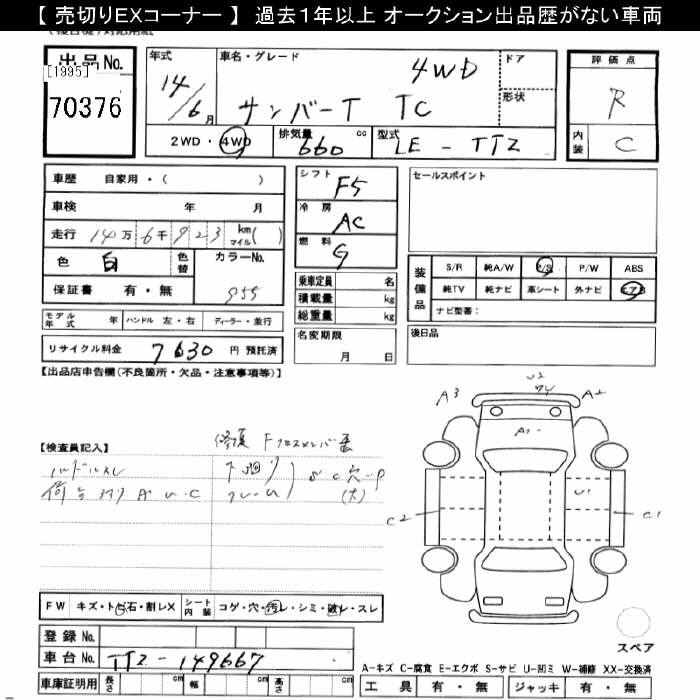 【 売切りEXコーナー 】 過去１年以上 オークション出品歴がない車両
出品No.
[1995]
70376
年式
14/6月
車名・グレード
サンバーT TC 4WD
ドア
形状
評価点
R
内装
C
2WD・4WD
排気量 660 cc
型式 LE-TT2
車歴 自家用・( )
車検 年 月
走行 14万6千923 km マイル( )
色 白 色替
カラーNo. 955
保証書 有・無
モデル年式 年 ハンドル 左・右 ディーラー・並行
リサイクル料金 7630 円 預託済
シフト F5
冷房 AC
燃料 G
乗車定員 名
積載量 kg
総重量 kg
名変期限
月 日
セールスポイント
装備品
S/R 純A/W P/S P/W ABS
純TV 純ナビ 革シート 外ナビ エアB
ナビ型番:
後日品
【出品店申告欄(不良箇所・欠品・注意事項等)】
【検査員記入】
修復 Fクロスメンバー
ハンドルスレ
下廻り
荷台 AUC
フレーム
SC穴-P
(大)
A3
U2
A2
A1
U1
C2
C1
FW キズ・トビ石・割レX
シート内装 コゲ・穴・汚レ・シミ・破レ・スレ
登録 No.
車台 No. TT2-149667
車庫証明用 長さ cm 幅 cm 高さ cm
スペア
A-キズ C-腐食 E-エクボ S-サビ U-凹ミ W-補修 XX-交換済
工具 有・無 ジャッキ 有・無